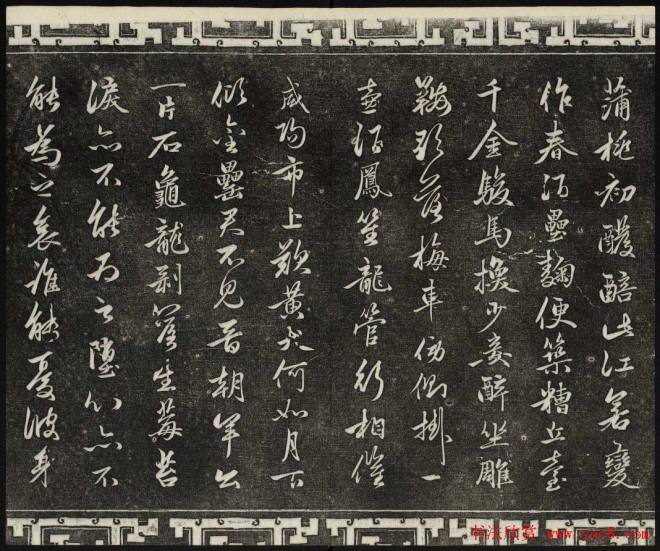 蒲桃初醱醅此江若變
作春酒壘麴便築糟丘臺
千金駿馬換少妾醉坐雕
鞍歌落梅車傍側掛一
壺酒鳳笙龍管行相催
咸陽市上歎黃犬何如月下
傾金罍君不見晉朝羊公
一片石龜龍剝落生莓苔
淚亦不能為之墮心亦不
能為之哀誰能憂彼身
书法欣赏 www.yac8.com